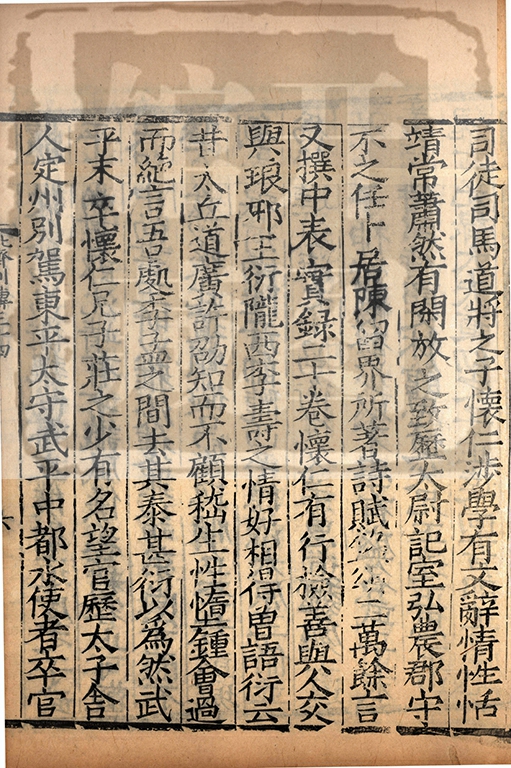 司徒司馬道將之子懷仁涉學有文辭情性恬
靖常蕭然有閑放之致歷太尉記室弘農郡守
不之任卜居陳留界所著詩賦銘頌二萬餘言
又撰中表實録二十卷懷仁有行檢善與人交
與琅邪王衍隴西李壽之情好相得曽語衍云
昔太丘道廣許劭知而不顧嵇生性惰鍾會過
而絶言吾處季孟之間去其泰甚衍以爲然武
平末卒懷仁兄子莊之少有名望官歷太子舎
人定州別駕東平太守武平中都水使者卒官
北齊列傳二十四
六